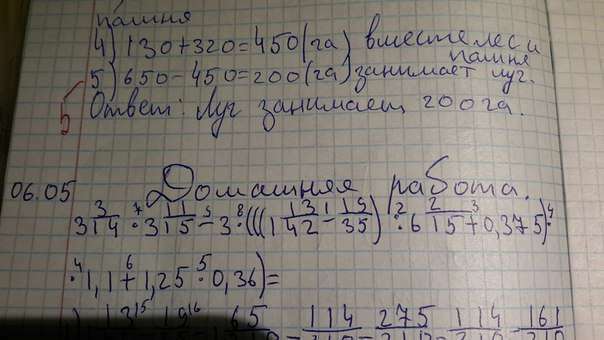 пашня
4) 130+320=450(га) вместе лес и пашня
5) 650-450=200(га) занимает луг.
Ответ: Луг занимает 200га.
5
06.05 Домашняя работа.
3 3/14 · 3 11/15 - 3 · (((1 13/42 - 1 19/35) : 6 2/15 + 0,375) ·
· 1,1 + 1,25 · 0,36) =
114/210 - 161/210